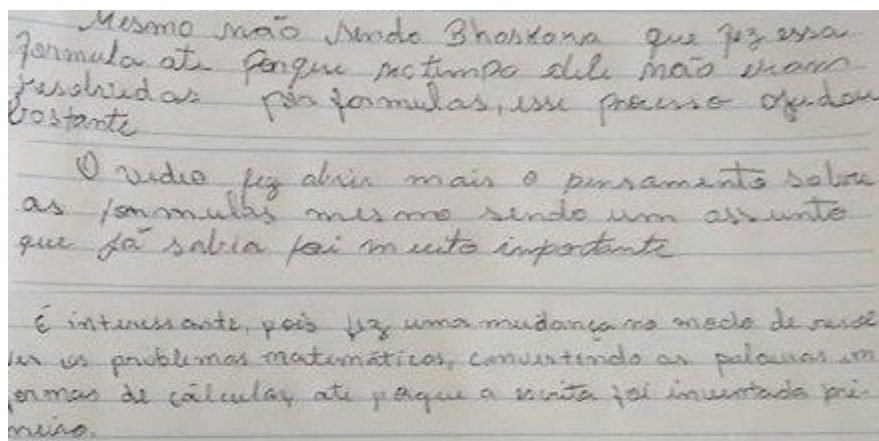 Mesmo não sendo Bhaskara que fez essa
formula ate porque no tempo dele não eram
resolvidas por formulas, esse processo ajudou
bastante
O video fez abrir mais o pensamento sobre
as formulas mesmo sendo um assunto
que já sabia foi muito importante
É interessante, pois fez uma mudança no modo de resol
ver os problemas matemáticos, convertendo as palavras em
formas de calcular, ate porque a escrita foi inventada pri-
meiro.